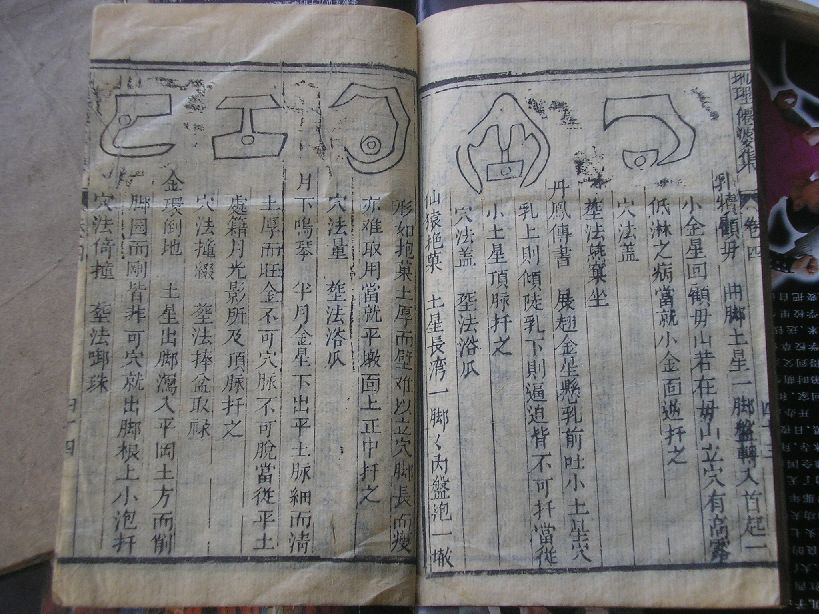 地理僊婆集 卷四
四十三
乳犢顧母 曲脚土星一脚盤轉入首起一
小金星回顧母山若在母山立穴有高露
低淋之病當就小金面迎扦之
穴法蓋
塟法
坐
丹鳳傳書 展翅金星懸乳前吐小土星穴
乳上則傾陡乳下則逼迫皆不可扦當從
小土星頂脉扦之
穴法蓋 塟法浴瓜
仙猿抱菓 土星長湾一脚〻内盤抱一墩
形如抱菓土厚而壁难以立穴脚長而瘦
亦难取用當就平墩面上正中扦之
穴法 塟法浴瓜
月下鳴琴 半月金星下出平土脉細而清
土厚而旺金不可穴脉不可脫當從平土
處 月光影所及頂脉扦之
穴法撞 塟法捧盆取
金環倒地 土星出脚瀉入平岡土方而削
脚圓而 皆非可穴就出脚根上小泡扦
穴法倚撞 塟法 珠
四十四